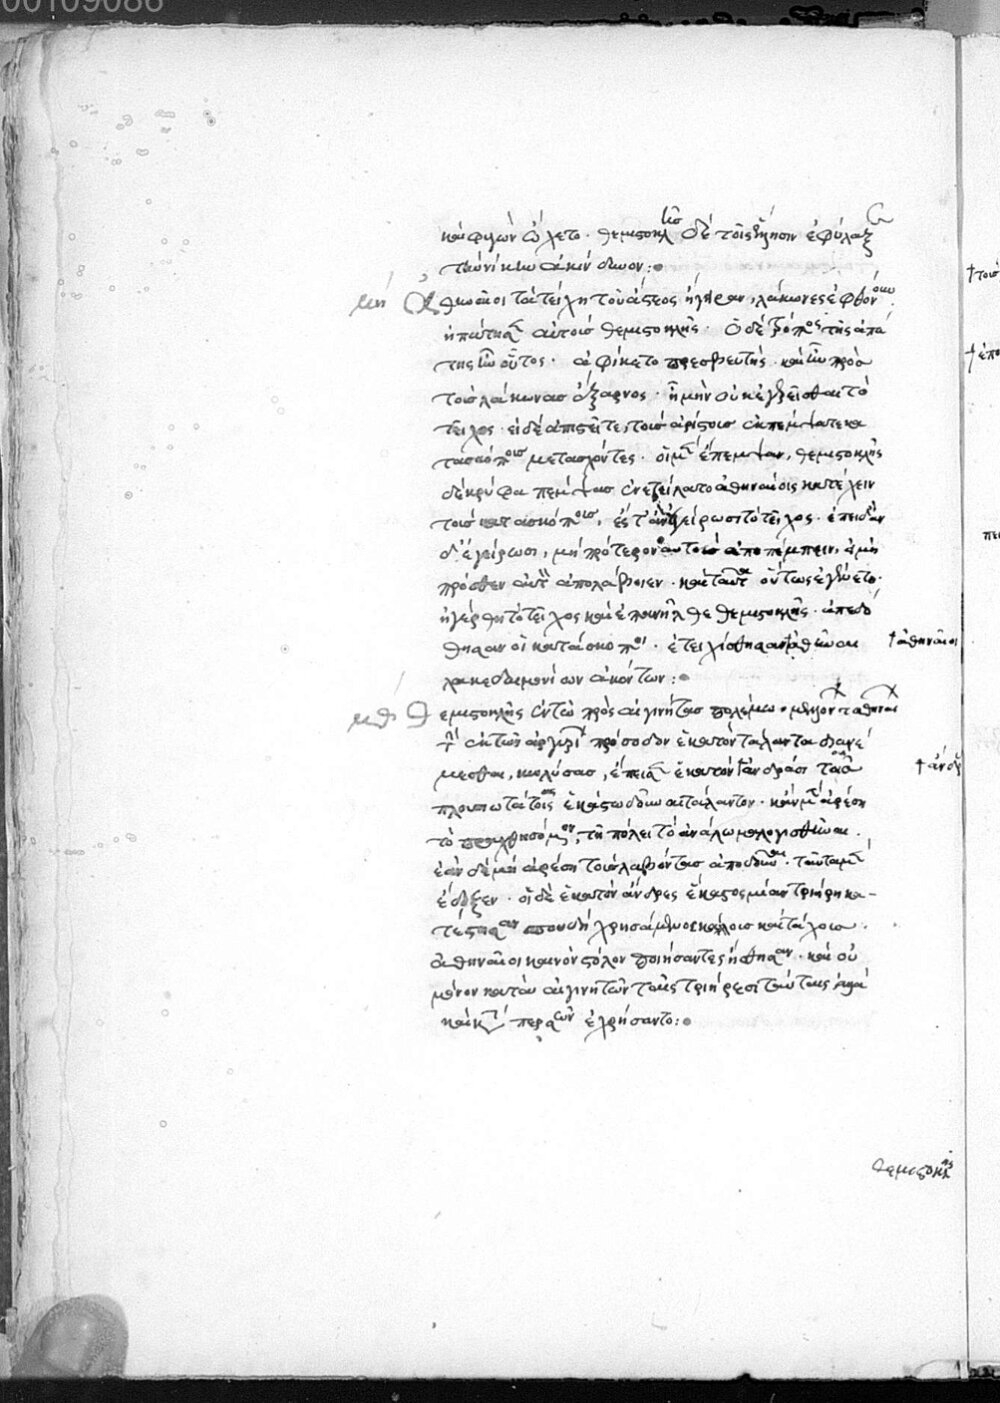 00109086
καὶ φυγὼν ὤλετο. θεμιστοκλῆς δὲ τοῖς ἕλλησιν ἐφύλαξε
τὴν νίκην ἀκίνδυνον:
μη Ἀθηναῖοι τὰ τείχη τοῦ ἄστεος ἤγειραν, λάκωνες ἐφθόνουν.
ἠπάτησεν αὐτοὺς θεμιστοκλῆς. ὁ δὲ τρόπος τῆς ἀπά
της ἦν οὗτος. ἀφίκετο πρεσβευτὴς καὶ ἦν πρὸς
τοὺς λάκωνας ἔξαρνος. ἦ μὴν οὐκ ἐγείρεσθαι τὸ
τεῖχος. εἰ δὲ ἀπιστεῖτε, τοὺς ἀρίστους ἐκπέμψατε κα
τασκόπους μετασχόντες. οἱ μὲν ἔπεμψαν, θεμιστοκλῆς
δὲ κρύφα πέμψας ἐνετείλατο ἀθηναίοις κατέχειν
τοὺς κατασκόπους, ἔς τ' ἂν ἐγείρωσι τὸ τεῖχος. ἐπειδὰν
δ' ἐγείρωσι, μὴ πρότερον αὐτοὺς ἀποπέμπειν, ἢ μὴ
πρόσθεν αὐτὸν ἀπολάβοιεν. καὶ ταῦτα οὕτως ἐγένετο.
ἠγέρθη τὸ τεῖχος καὶ ἐπανῆλθε θεμιστοκλῆς. ἀπεδό
θησαν οἱ κατάσκοποι. ἐτειχίσθησαν ἀθῆναι † ἀθηναῖοι
λακεδαιμονίων ἀκόντων:
μθ Θεμιστοκλῆς ἐν τῷ πρὸς αἰγινήτας πολέμῳ μελλόντων ἀθηναίων
τὴν ἐκ τῶν ἀργυρίων πρόσοδον ἑκατὸν τάλαντα διανέ
μεσθαι, κωλύσας, ἔπεισεν ἑκατὸν ἀνδράσι τοῖς † ἀνδρ
πλουσιωτάτοις ἑκάστῳ δοῦναι τάλαντον. κἂν μὲν ἀρέσῃ
τὸ πραχθησόμενον, τῇ πόλει τὸ ἀνάλωμα λογισθῆναι.
ἐὰν δὲ μὴ ἀρέσῃ τοὺς λαβόντας ἀποδοῦναι. ταῦτα μὲν
ἔδοξεν. οἱ δὲ ἑκατὸν ἄνδρες ἕκαστος μίαν τριήρη κα-
τέστησαν σπουδῇ χρησάμενοι κάλλους καὶ τάχους.
ἀθηναῖοι καινὸν στόλον ποιήσαντες ἥσθησαν. καὶ οὐ
μόνον κατὰ αἰγινητῶν ταῖς τριήρεσι ταύταις ἀλλὰ
καὶ κατὰ περσῶν ἐχρήσαντο:
θεμιστοκλῆς